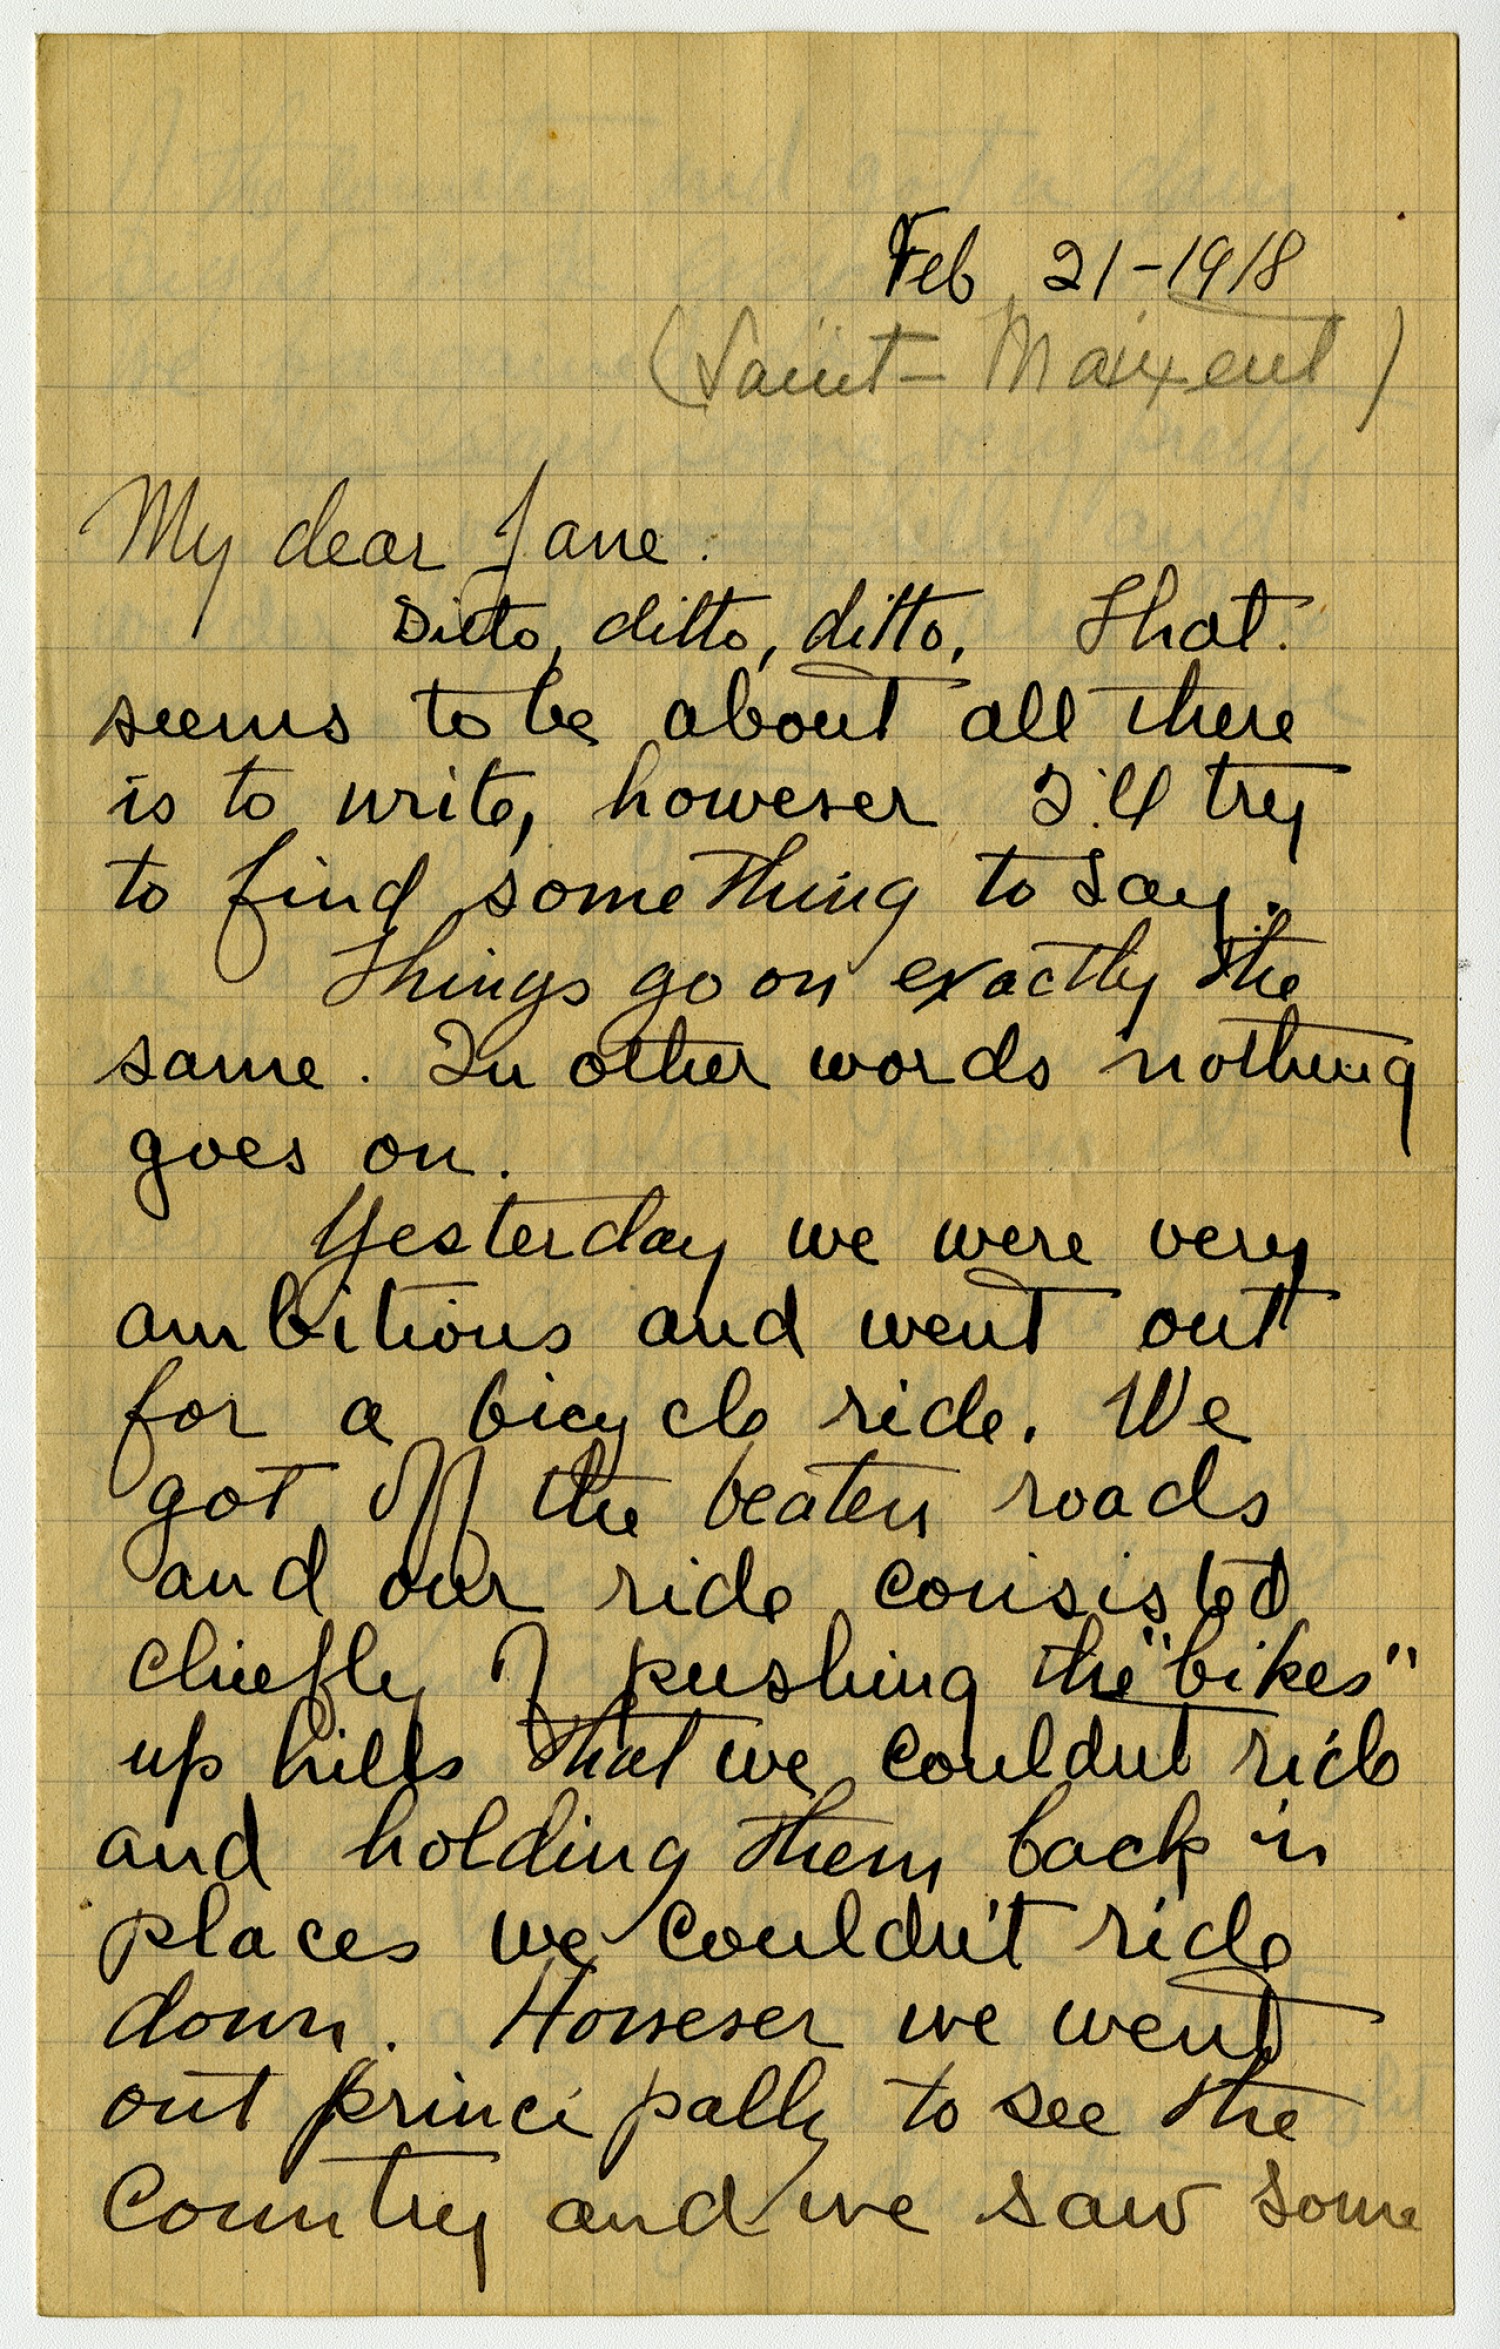 Feb 21-1918
(Saint-Maixent)
My dear Jane.
Ditto, ditto, ditto, That.
seems to be about all there
is to write, however I'll try
to find something to say.
Things go on exactly the
same. In other words nothing
goes on.
Yesterday we were very
ambitious and went out
for a bicycle ride. We
got off the beaten roads
and our ride consisted
chiefly of pushing the "bikes"
up hills that we couldnt ride
and holding them back in
places we couldn't ride
down. However we went
out principally to see the
Country and we saw some